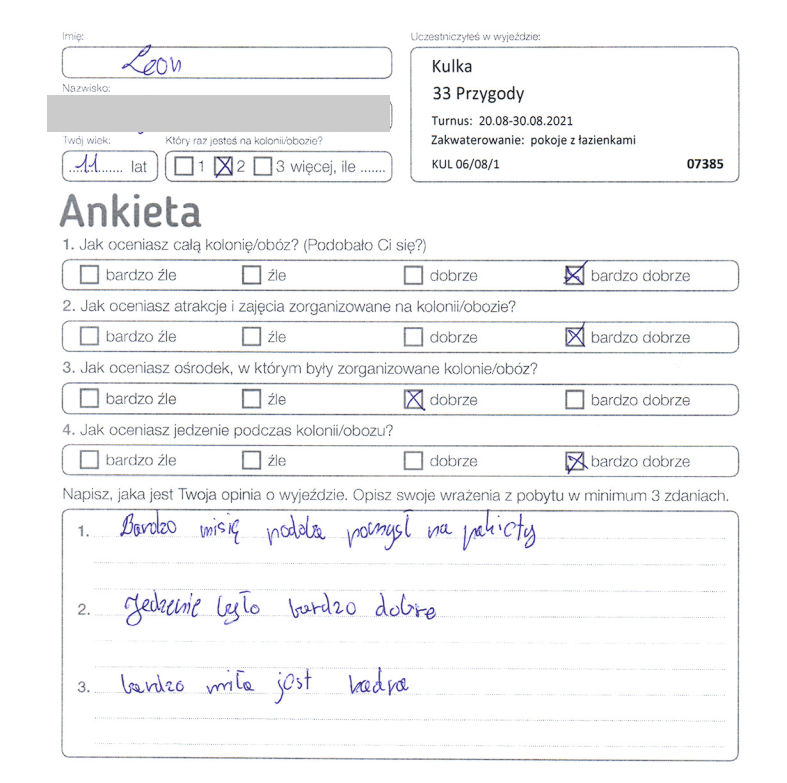 Imię:
Leon
Uczestniczyłeś w wyjeździe:
Kulka
33 Przygody
Turnus: 20.08-30.08.2021
Zakwaterowanie: pokoje z łazienkami
KUL 06/08/1 07385
Nazwisko:
Twój wiek: Który raz jesteś na kolonii/obozie?
11 lat 1 2 3 więcej, ile .......
Ankieta
1. Jak oceniasz całą kolonię/obóz? (Podobało Ci się?)
bardzo źle źle dobrze bardzo dobrze
2. Jak oceniasz atrakcje i zajęcia zorganizowane na kolonii/obozie?
bardzo źle źle dobrze bardzo dobrze
3. Jak oceniasz ośrodek, w którym były zorganizowane kolonie/obóz?
bardzo źle źle dobrze bardzo dobrze
4. Jak oceniasz jedzenie podczas kolonii/obozu?
bardzo źle źle dobrze bardzo dobrze
Napisz, jaka jest Twoja opinia o wyjeździe. Opisz swoje wrażenia z pobytu w minimum 3 zdaniach.
1. Bardzo misię podoba pomysł na pakiety
2. Jedzenie było bardzo dobre
3. bardzo miła jest kadra